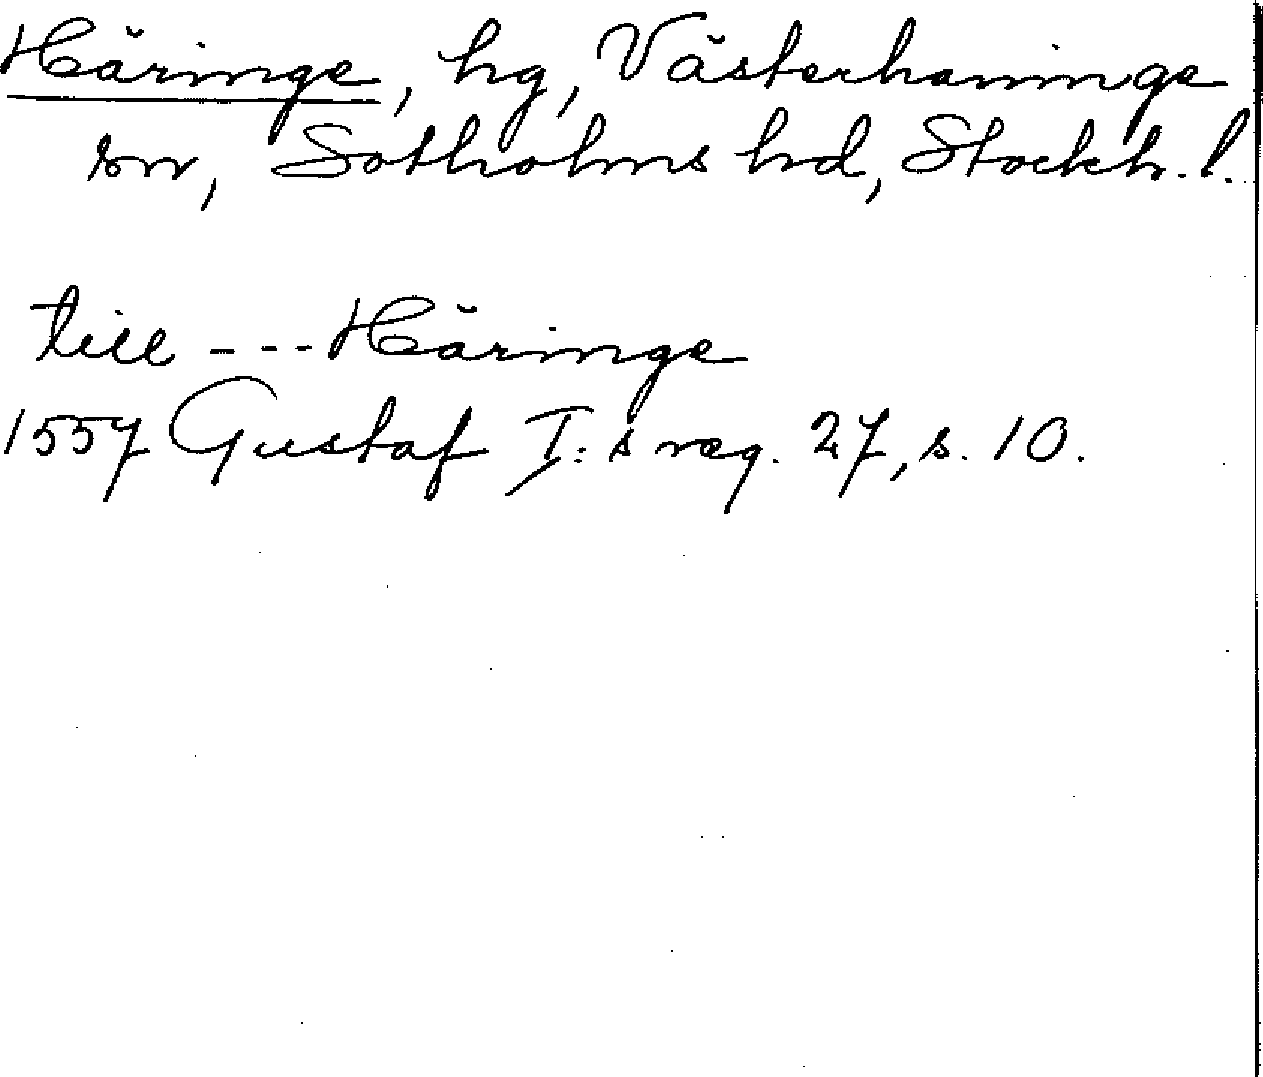 Häringe, hg, Västerhaninge
sn, Sotholms hd, Stockh. l.
till --- Häringe
1557 Gustaf I:s reg. 27, s. 10.